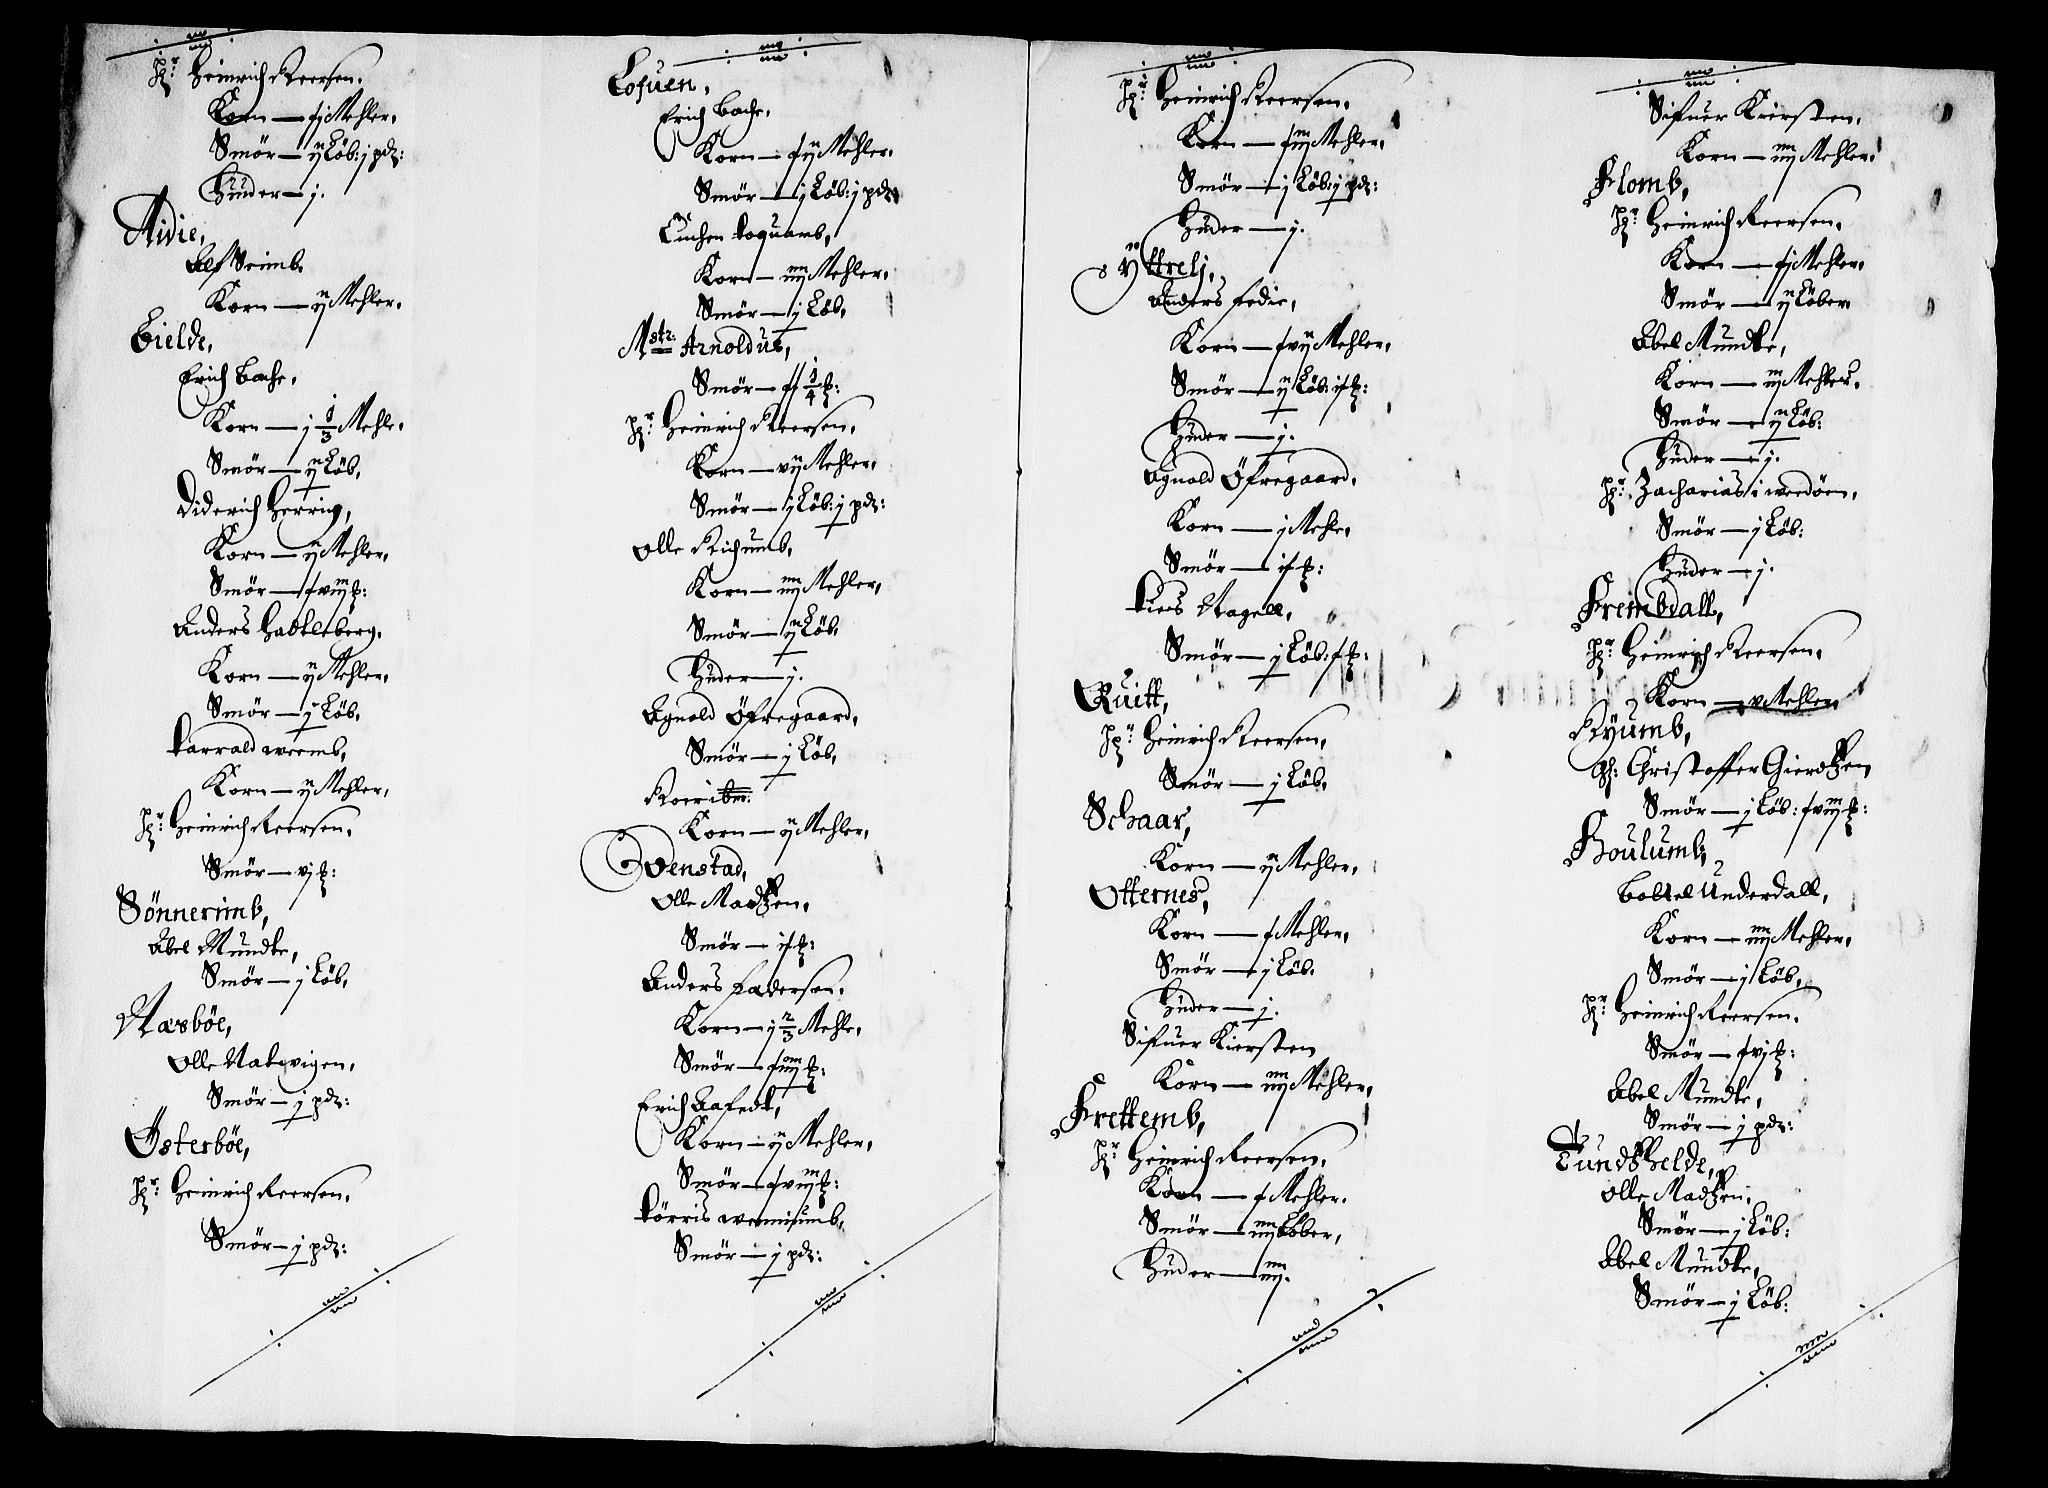 Hr: Heinrich Reersen.
Korn — fj Mehler.
Smör — ij Löb: j pdz:
Huder — j.
Aidie,
Korn — ij Mehler.
Bielde,
Erich Bache.
Korn — j 1/3 Mehle.
Smör — ij Löb.
Diderich Herrig,
Korn — ij Mehler.
Smör — fviij
Anders
Korn — ij Mehler.
Smör — j Löb.
Korn — ij Mehler.
Hr: Heinrich Reersen.
Smör — vj
Sönnerimb,
Abel Mundte,
Smör — j Löb.
Næsböe,
Olle Natwigen.
Smör — j pdz:
Österböe,
Hr: Heinrich Reersen.
Smör — j pdz:
Lofuen,
Erich Bache.
Korn — fij Mehler.
Smör — j Löb: j pdz
Korn — iiij Mehler.
Smör — j Löb.
Mstr: Arnoldus,
Smör — 1/4
Hr: Heinrich Reersen.
Korn — vij Mehler.
Smör — j Löb: j pdz:
Olle
Korn — iiij Mehler.
Smör — ij Löb.
Huder — j.
Agnald Öfregaard.
Smör — j Löb.
Korn — ij Mehler.
Wenstad,
Olle Madtzen.
Smör — if
Anders
Korn — j 2/3 Mehle.
Smör — fiiij
Erich Aafedt,
Korn — ij Mehler.
Smör — fviij
Smör — j pdz:
Hr: Heinrich Reersen.
Korn — fiij Mehler.
Smör — j Löb: j pdz:
Huder — j.
Yttrelj,
Anders Fedie,
Korn — fvij Mehler.
Smör — ij Löb: if
Huder — j.
Agnald Öfregaard.
Korn — j Mehle.
Smör — if
Nagell.
Smör — j Löb: f
Quitt,
Hr: Heinrich Reersen.
Smör — j Löb.
Schaar,
Korn — ij Mehler.
Otternes,
Korn — f Mehler.
Smör — j Löb.
Huder — j.
Sifuer Kiersten
Korn — iiij Mehler.
Frettemb,
Hr: Heinrich Reersen.
Korn — f Mehler.
Smör — iiij Löber.
Huder — iiij.
Sifuer Kiersten.
Korn — iiij Mehler.
Flomb,
Hr: Heinrich Reersen.
Korn — fj Mehler.
Smör — ij Löber.
Abel Mundte,
Korn — iij Mehler.
Smör — ij Löb:
Huder — j.
Hr: Zacharias i
Smör — j Löb:
Huder — j.
Frembdall,
Hr: Heinrich Reersen.
Korn — v Mehler.
Ryumb,
Christoffer Giertzen
Smör — j Löb: fviij
Houlumb,
Boltel Underdall,
Korn — iiij Mehler.
Smör — j Löb.
Hr: Heinrich Reersen.
Smör — fvj
Abel Mundte,
Smör — j pdz:
Tundshelde,
Olle Madtzen.
Smör — j Löb:
Abel Mundte,
Smör — j Löb: